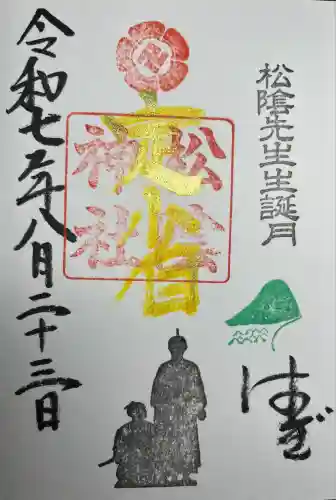 松陰先生生誕月
はぎ
松陰
神社
令和七年八月二十三日